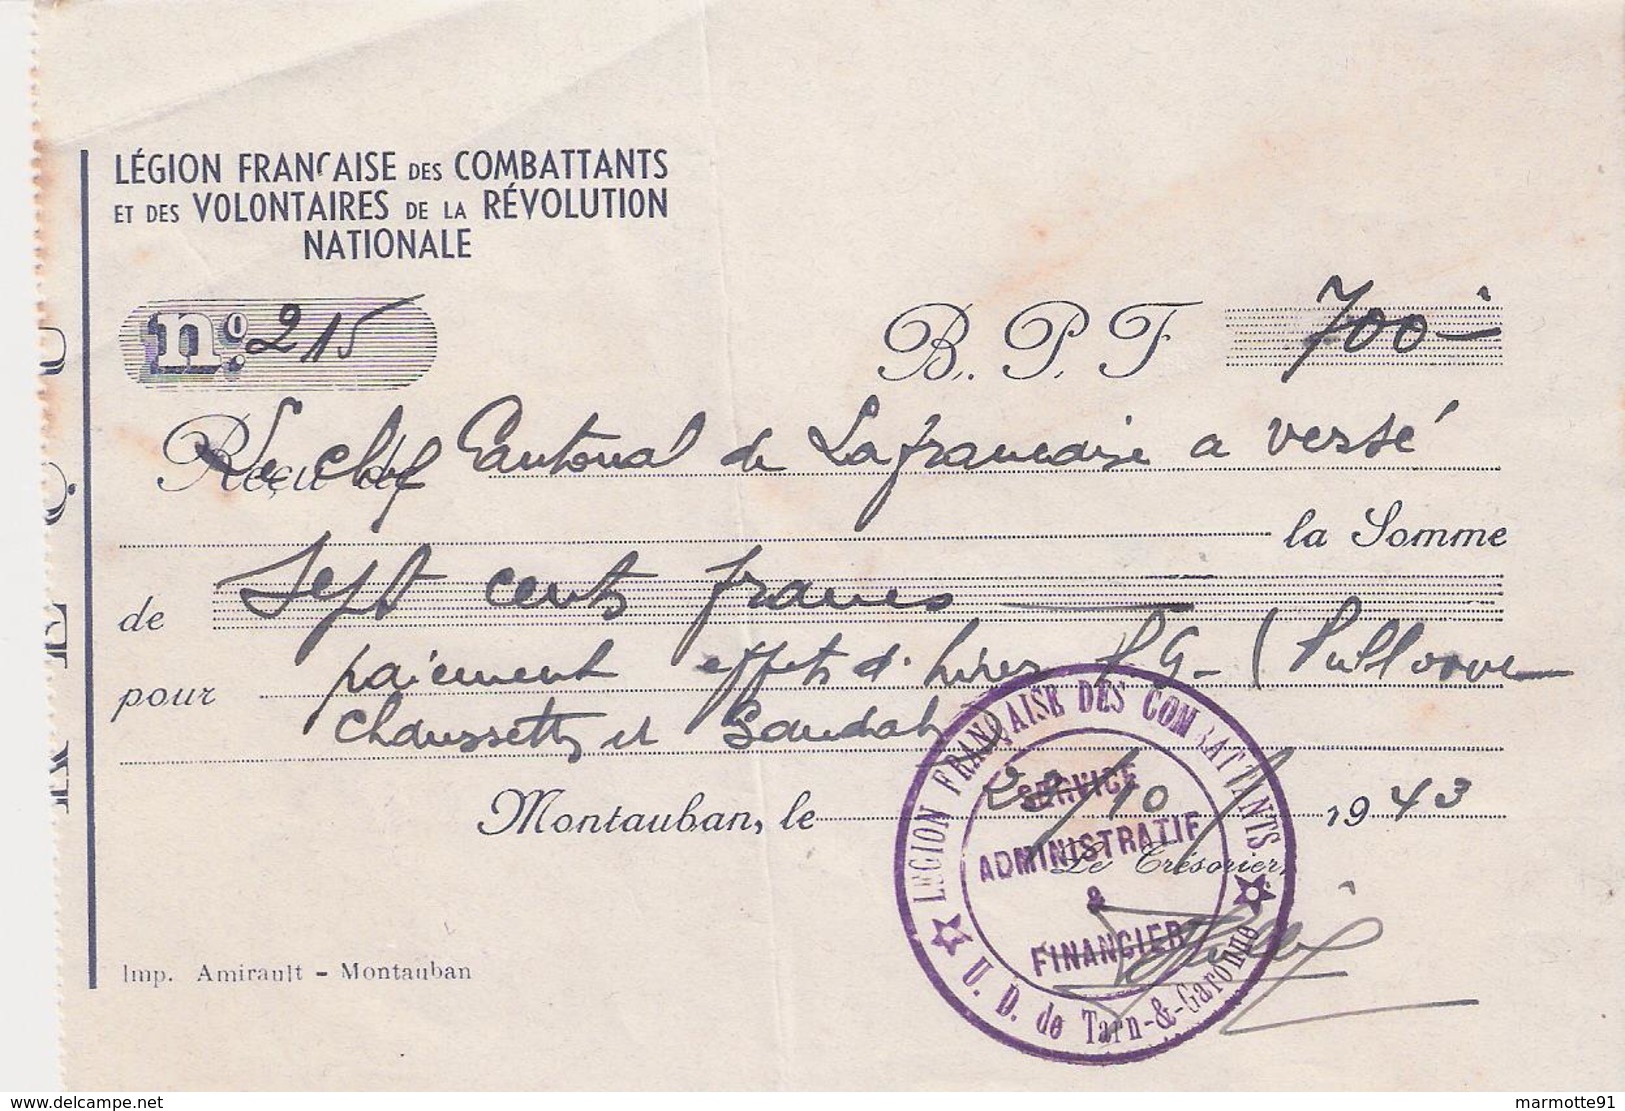 LÉGION FRANÇAISE DES COMBATTANTS
ET DES VOLONTAIRES DE LA RÉVOLUTION
NATIONALE
nº: 215
B. P. F 700 -
Reçu de Le chef Cantonal de Lafrancaise a versé
la Somme
de Sept cents francs
pour paiement effets d'hiver P G - ( Pullover
chaussettes et Sandales
Montauban, le 23/10/ 1943
Le Trésorier,
LEGION FRANÇAISE DES COMBATTANTS
SERVICE
ADMINISTRATIF
&
FINANCIER
U. D. de Tarn-&-Garonne
Imp. Amirault - Montauban
www.delcampe.net
marmotte91